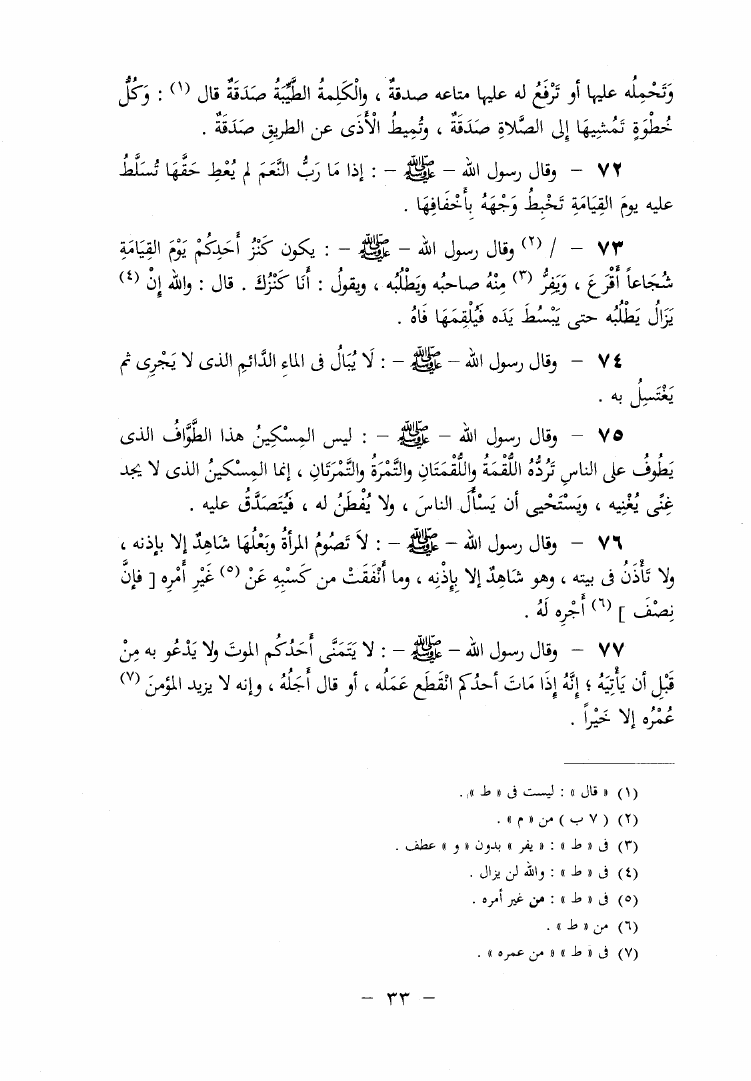 وَتَحْمِلُه عليها أو تَرْفَعُ له عليها متاعه صدقةٌ ، والْكَلِمةُ الطَّيِّبَةُ صَدَقَةٌ قال (١) : وَكُلُّ
خُطْوَةٍ تَمْشِيهَا إلى الصَّلاةِ صَدَقَةٌ ، وتُمِيطُ الْأَذَى عن الطريقِ صَدَقَةٌ .
٧٢ – وقال رسول الله – ﷺ – : إذا مَا رَبُّ النَّعَمَ لم يُعْطِ حَقَّهَا تُسَلَّطُ
عليه يومَ القِيَامَةِ تَخْبِطُ وَجْهَهُ بِأَخْفَافِهَا .
٧٣ – / (٢) وقال رسول الله – ﷺ – : يكون كَنْزُ أَحَدِكُمْ يَوْمَ القِيَامَةِ
شُجَاعاً أَقْرَعَ ، وَيَفِرُّ (٣) مِنْهُ صاحبُه ويَطْلُبُه ، ويقولُ : أَنَا كَنْزُكَ . قال : والله إِنْ (٤)
يَزَالُ يَطْلُبُه حتى يَبْسُطَ يَدَه فَيُلْقِمَهَا فَاهُ .
٧٤ – وقال رسول الله – ﷺ – : لَا يُبَالُ فى الماءِ الدَّائمِ الذى لا يَجْرِى ثم
يَغْتَسِلُ به .
٧٥ – وقال رسول الله – ﷺ – : ليس المِسْكِينُ هذا الطَّوَّافُ الذى
يَطُوفُ على الناسِ تَرُدُّهُ اللُّقْمَةُ واللُّقْمَتَانِ والتَّمْرَةُ والتَّمْرَتَانِ ، إنما المِسْكينُ الذى لا يجد
غِنًى يُغْنِيه ، ويَسْتَحْيى أن يَسْأَلَ الناسَ ، ولا يُفْطَنُ له ، فَيُتَصَدَّقُ عليه .
٧٦ – وقال رسول الله – ﷺ – : لاَ تَصُومُ المرأةُ وبَعْلُهَا شَاهِدٌ إلا بإذنه ،
ولا تَأْذَنُ فى بيته ، وهو شَاهِدٌ إلا بِإِذْنِه ، وما أَنْفَقَتْ من كَسْبِهِ عَنْ (٥) غَيْرِ أَمْرِه [ فإنَّ
نِصْفَ ] (٦) أَجْرِه لَهُ .
٧٧ – وقال رسول الله – ﷺ – : لا يَتَمَنَّى أَحَدُكُم الموتَ ولا يَدْعُو به مِنْ
قَبْلِ أن يَأْتِيَهُ ؛ إِنَّهُ إِذَا مَاتَ أحدُكم انْقَطَع عَمَلُه ، أو قال أَجَلُهُ ، وإنه لا يزيد المؤمنَ (٧)
عُمْرُه إلا خَيْراً .
(١) « قال » : ليست فى « ط » .
(٢) ( ٧ ب ) من « م » .
(٣) فى « ط » : « يفر » بدون « و » عطف .
(٤) فى « ط » : والله لن يزال .
(٥) فى « ط » : من غير أمره .
(٦) من « ط » .
(٧) فى « ط » « من عمره » .
– ٣٣ –